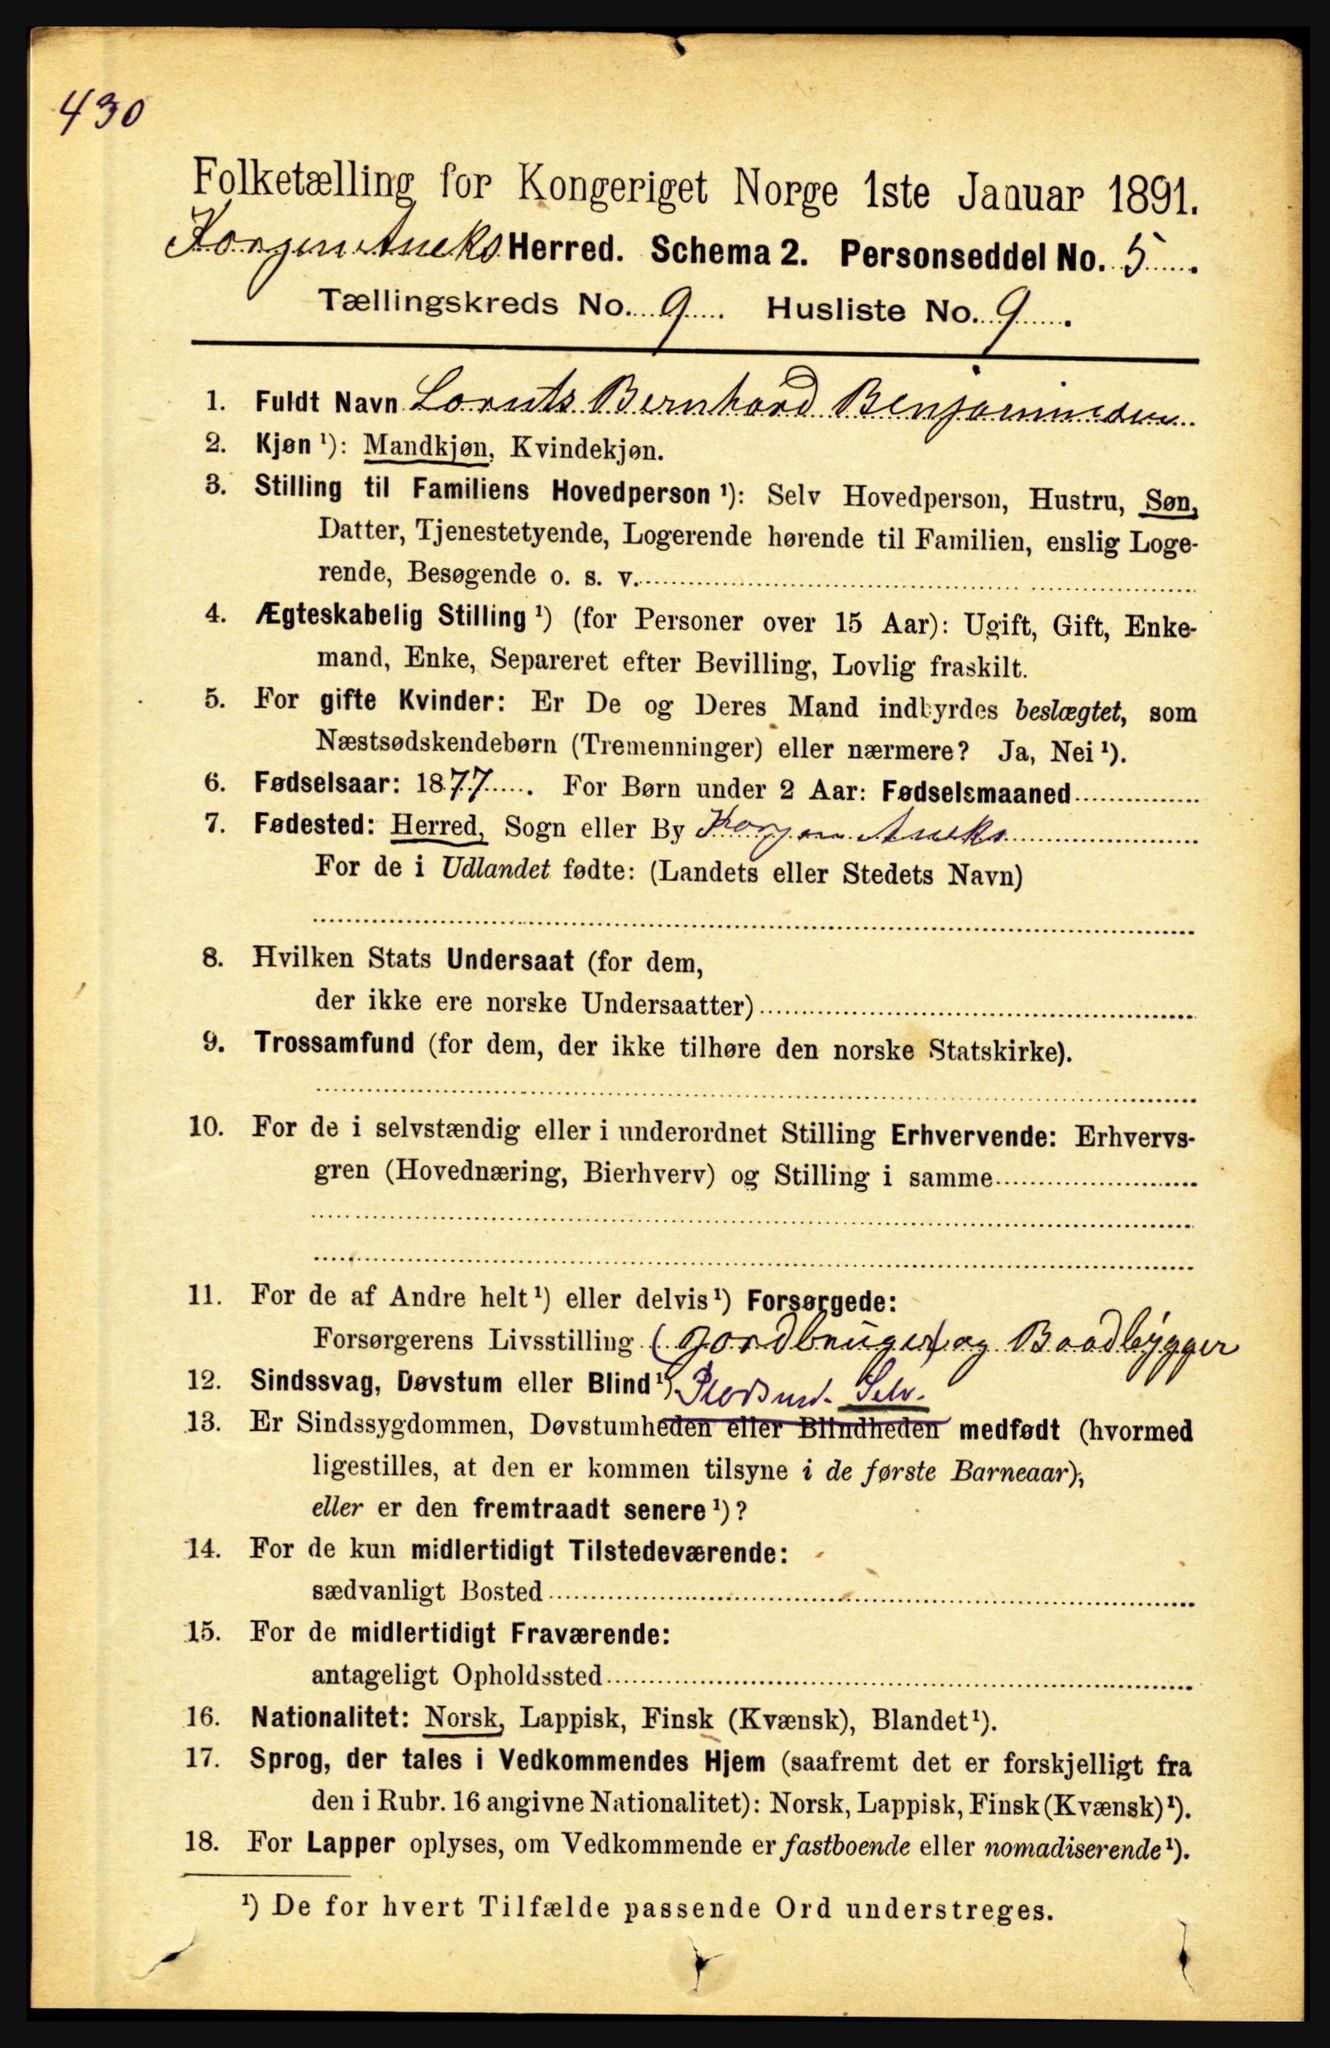 430
Folketælling for Kongeriget Norge 1ste Januar 1891.
Korgen Aneks Herred. Schema 2. Personseddel No. 5.
Tællingskreds No. 9. Husliste No. 9.
1. Fuldt Navn Lornts Bernhard Benjaminsen
2. Kjøn ¹): Mandkjøn, Kvindekjøn.
3. Stilling til Familiens Hovedperson ¹): Selv Hovedperson, Hustru, Søn,
Datter, Tjenestetyende, Logerende hørende til Familien, enslig Loge-
rende, Besøgende o. s. v.
4. Ægteskabelig Stilling ¹) (for Personer over 15 Aar): Ugift, Gift, Enke-
mand, Enke, Separeret efter Bevilling, Lovlig fraskilt.
5. For gifte Kvinder: Er De og Deres Mand indbyrdes beslægtet, som
Næstsødskendebørn (Tremenninger) eller nærmere? Ja, Nei ¹).
6. Fødselsaar: 1877. For Børn under 2 Aar: Fødselsmaaned
7. Fødested: Herred, Sogn eller By Korgen Aneks
For de i Udlandet fødte: (Landets eller Stedets Navn)
8. Hvilken Stats Undersaat (for dem,
der ikke ere norske Undersaatter)
9. Trossamfund (for dem, der ikke tilhøre den norske Statskirke).
10. For de i selvstændig eller i underordnet Stilling Erhvervende: Erhvervs-
gren (Hovednæring, Bierhverv) og Stilling i samme
11. For de af Andre helt ¹) eller delvis ¹) Forsørgede:
Forsørgerens Livsstilling (Jordbruger) og Baadbygger
12. Sindssvag, Døvstum eller Blind ¹). Selv.
13. Er Sindssygdommen, Døvstumheden eller Blindheden medfødt (hvormed
ligestilles, at den er kommen tilsyne i de første Barneaar),
eller er den fremtraadt senere ¹)?
14. For de kun midlertidigt Tilstedeværende:
sædvanligt Bosted
15. For de midlertidigt Fraværende:
antageligt Opholdssted
16. Nationalitet: Norsk, Lappisk, Finsk (Kvænsk), Blandet ¹).
17. Sprog, der tales i Vedkommendes Hjem (saafremt det er forskjelligt fra
den i Rubr. 16 angivne Nationalitet): Norsk, Lappisk, Finsk (Kvænsk) ¹).
18. For Lapper oplyses, om Vedkommende er fastboende eller nomadiserende ¹).
¹) De for hvert Tilfælde passende Ord understreges.